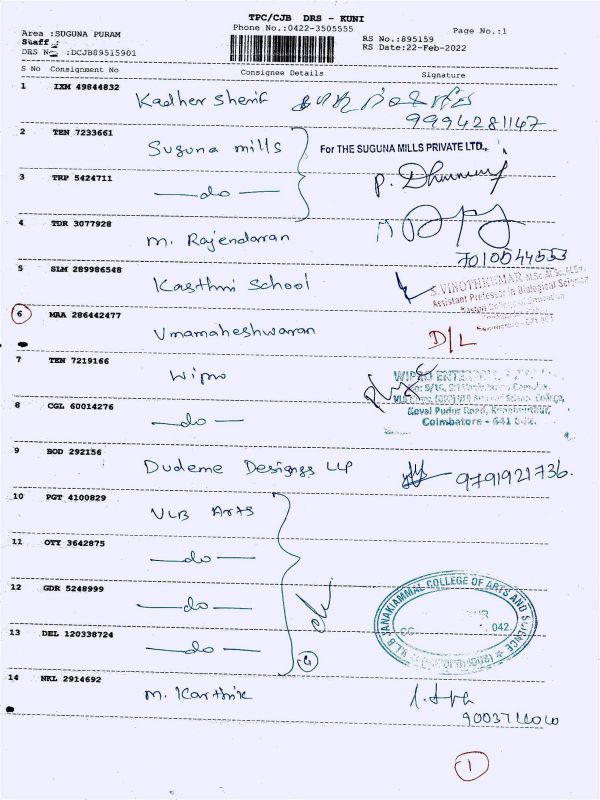 TPC/CJB DRS - KUNI
Phone No.:0422-3505555
Area :SUGUNA PURAM
Page No.:1
Staff :
RS No.:895159
DRS No :DCJB89515901
RS Date:22-Feb-2022
S No Consignment No Consignee Details Signature
1 IXM 49844832 Kadher Sherif
9994281147
2 TEN 7233661 Suguna mills For THE SUGUNA MILLS PRIVATE LTD.,
3 TRP 5424711 —do—
4 TDR 3077928 M. Rajendaran
7010544553
5 SLM 289986548 Kasthri School
S.VINOTHKUMAR M.Sc.,M.Sc.,M.Ed.,
Assistant Professor in Biological Science
6 MAA 286442477 Vmamaheshwaran D/L
7 TEN 7219166 Wipro
WIPRO
8 CGL 60014276 —do—
Kovai Pudur Road,
Coimbatore - 641 042.
9 BOD 292156 Dudeme Designgs LLP 9791921736.
10 PGT 4100829 VLB Arts
11 OTY 3642875 —do—
12 GDR 5248999 —do—
V.L.B JANAKIAMMAL COLLEGE OF ARTS AND SCIENCE
042.
13 DEL 120338724 —do—
4
14 NKL 2914692 M. Karthik
1